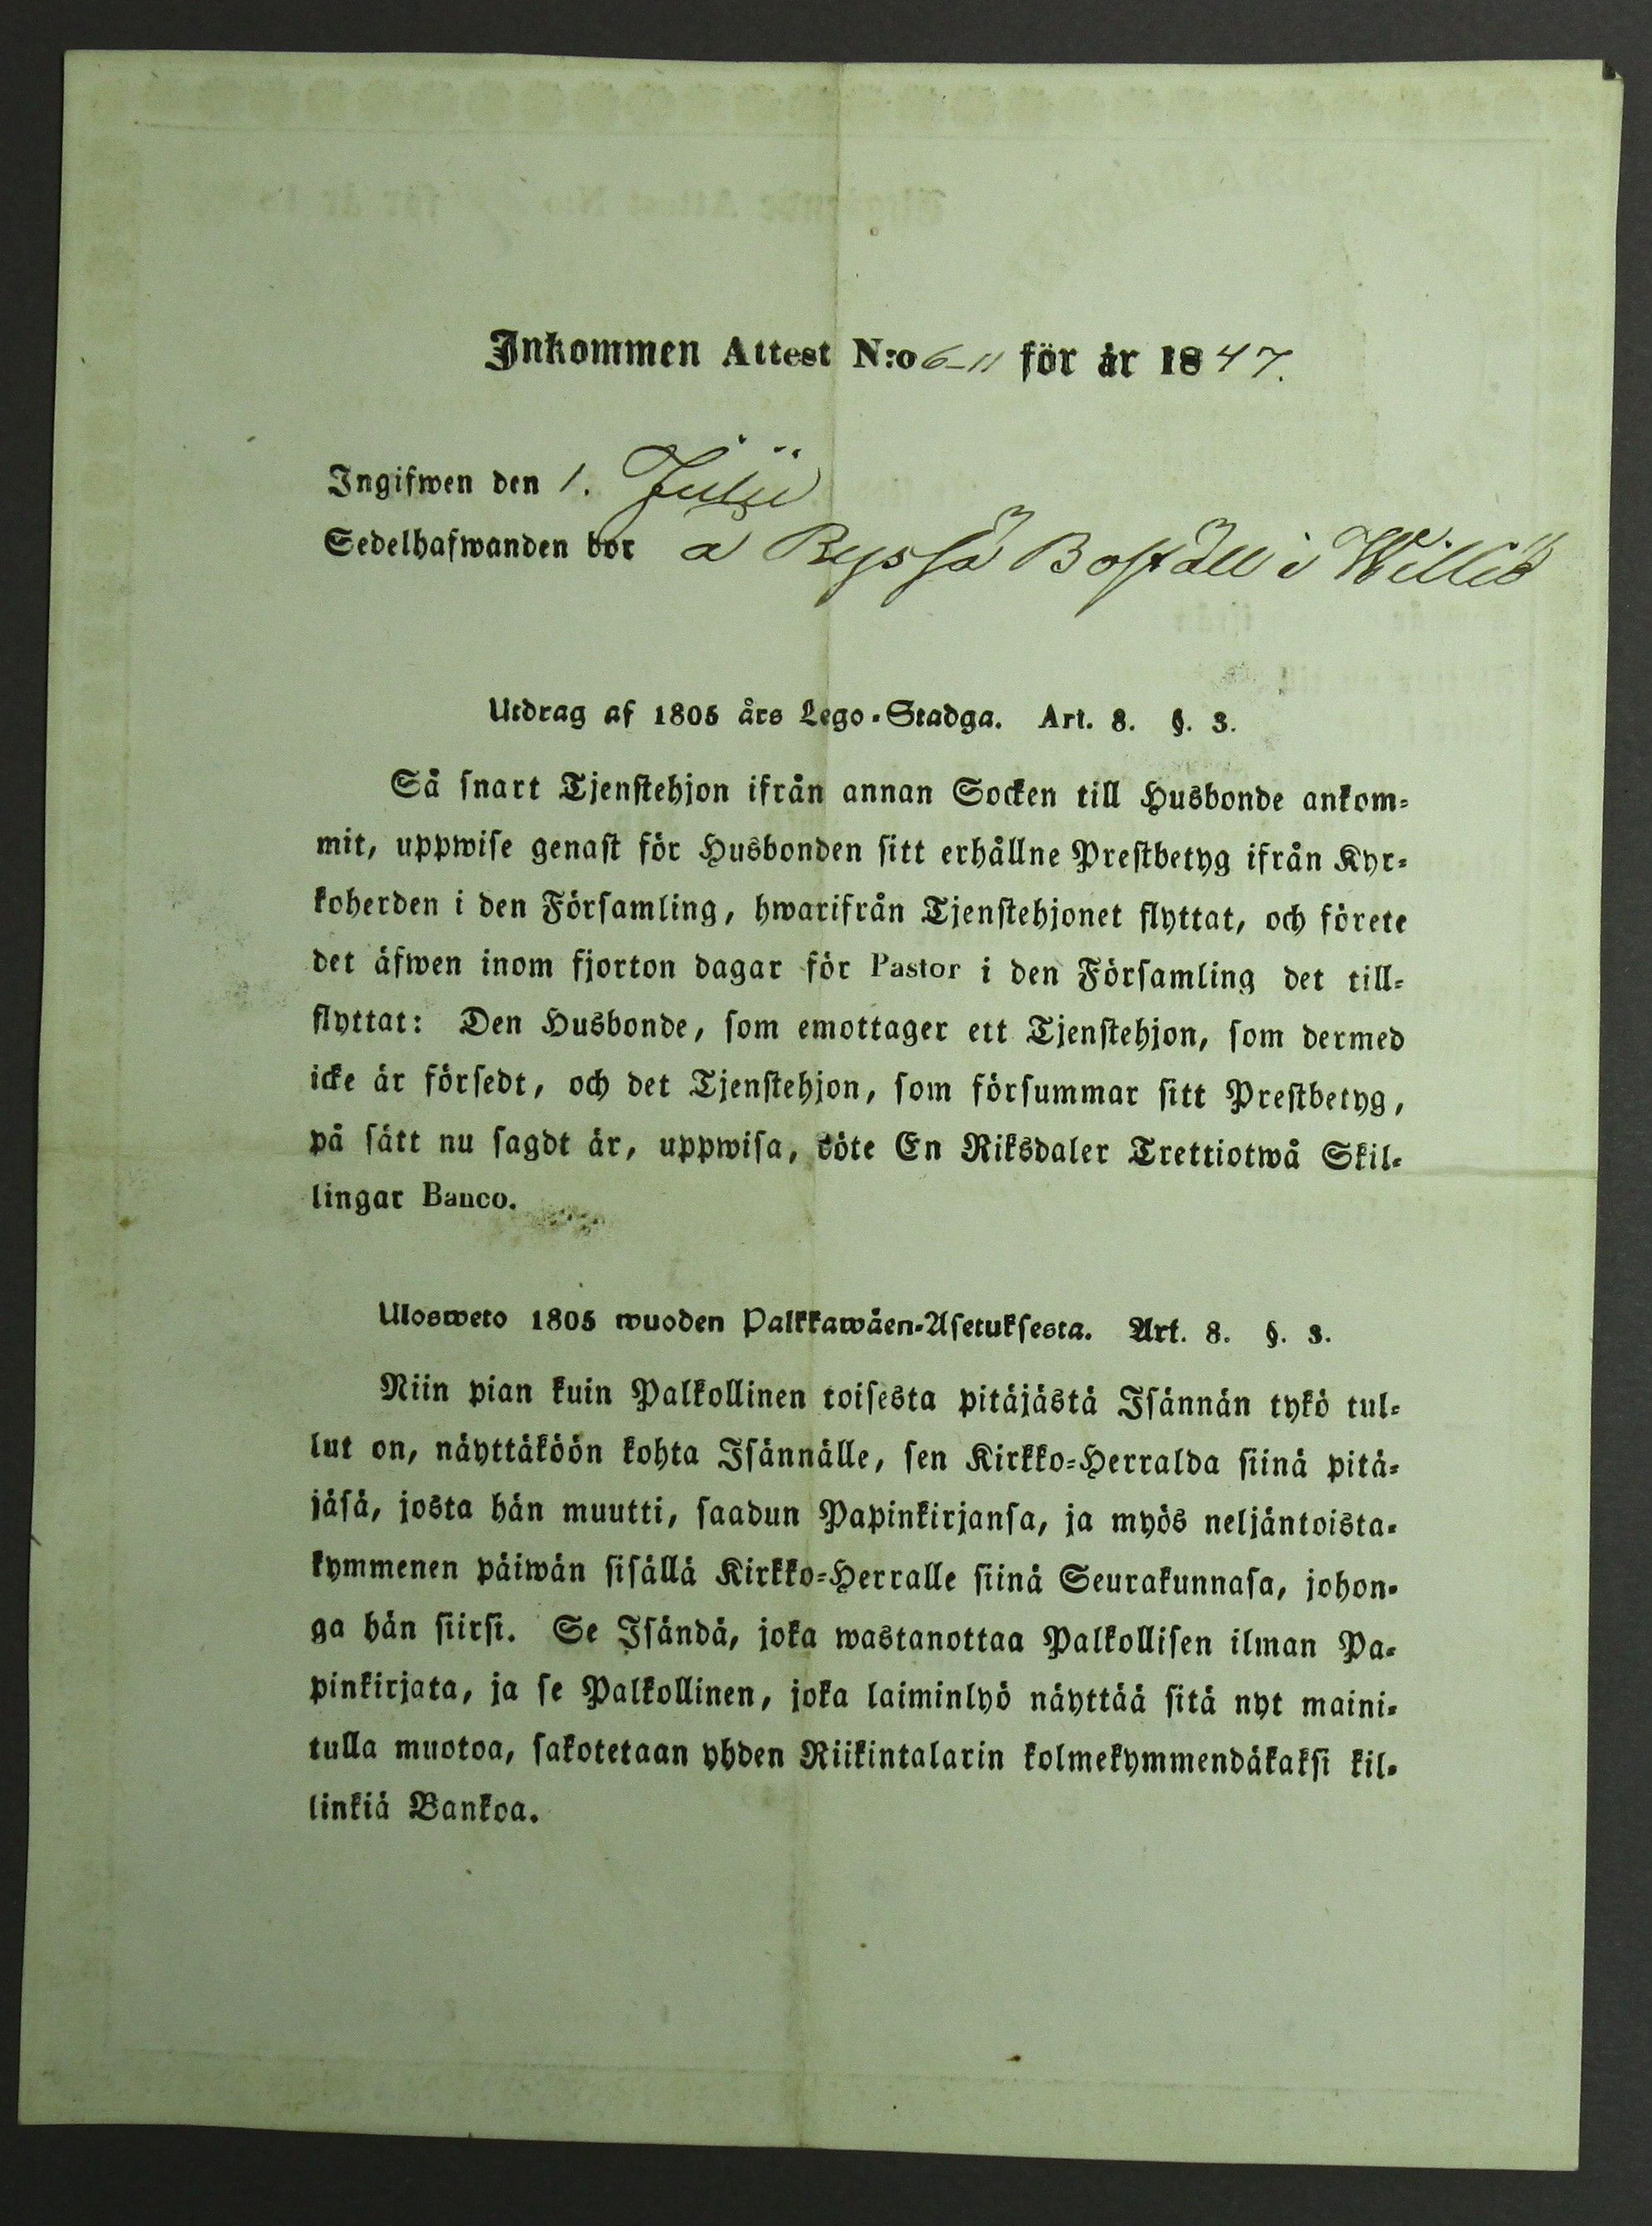 Inkommen Attest N:o 6-11 för år 1847.
Ingifwen den 1. Julii
Sedelhafwanden bor å Rysså Boställ i Williö
Utdrag af 1805 års Lego-Stadga. Art. 8. §. 3.
Så snart Tjenstehjon ifrån annan Socken till Husbonde ankom-
mit, uppwise genast för Husbonden sitt erhållne Prestbetyg ifrån Kyr-
koherden i den Församling, hwarifrån Tjenstehjonet flyttat, och förete
det äfwen inom fjorton dagar för Pastor i den Församling det till-
flyttat: Den Husbonde, som emottager ett Tjenstehjon, som dermed
icke är försedt, och det Tjenstehjon, som försummar sitt Prestbetyg,
på sätt nu sagdt är, uppwisa, böte En Riksdaler Trettiotwå Skil-
lingar Banco.
Ulosweto 1805 wuoden Palkkawäen-Asetuksesta. Art. 8. §. 3.
Niin pian kuin Palkollinen toisesta pitäjästä Isännän tykö tul-
lut on, näyttäköön kohta Isännälle, sen Kirkko-Herralda siinä pitä-
jäsä, josta hän muutti, saadun Papinkirjansa, ja myös neljäntoista-
kymmenen päiwän sisällä Kirkko-Herralle siinä Seurakunnasa, johon-
ga hän siirsi. Se Isändä, joka wastanottaa Palkollisen ilman Pa-
pinkirjata, ja se Palkollinen, joka laiminlyö näyttää sitä nyt maini-
tulla muotoa, sakotetaan yhden Riikintalarin kolmekymmendäkaksi kil-
linkiä Bankoa.